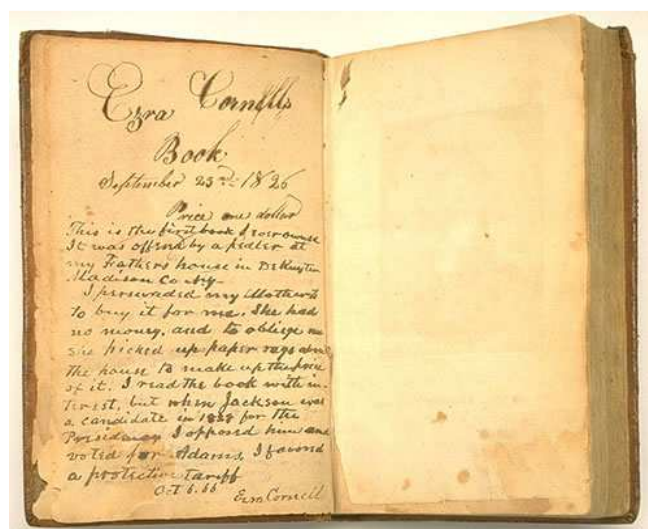 Ezra Cornells
Book
September 23rd 1826
Price one dollar
This is the first book I ever owned
It was offered by a pedler at
my Fathers house in DeRuyter
Madison Co NY
I persuaded my Mother to
to buy it for me. She had
no money, and to obliege me
she picked up paper rags about
the house to make up the price
of it. I read the book with in-
terest, but when Jackson was
a candidate in 1828 for the
Presidency I opposed him and
voted for Adams, I favored
a protective tariff
Oct 6. 66
Ezra Cornell